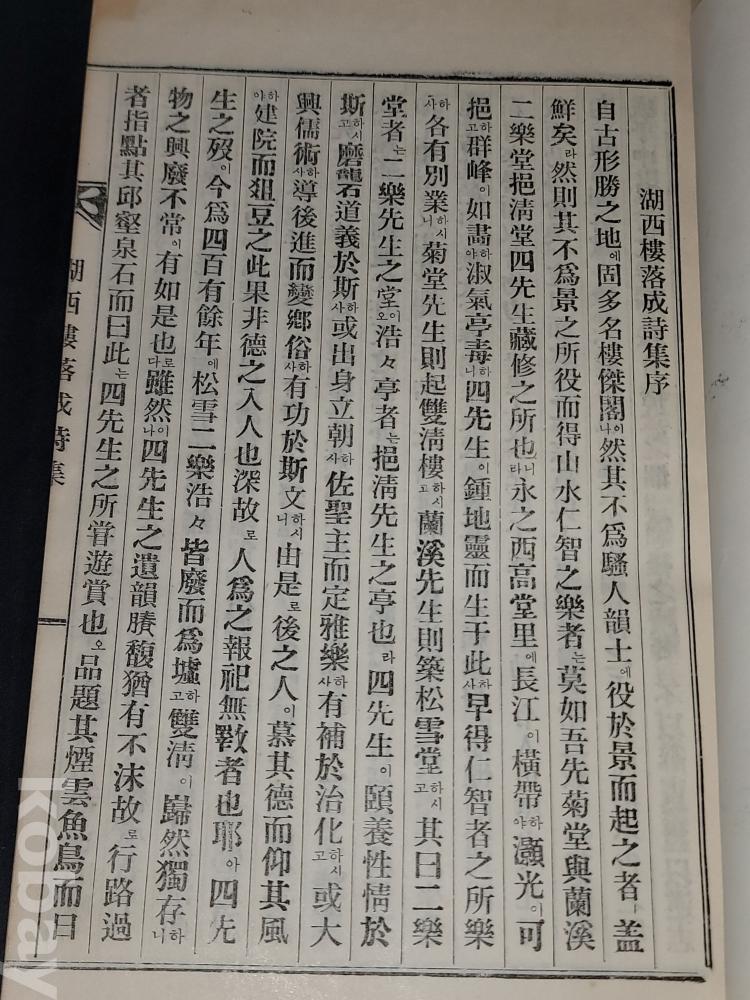 湖西樓落成詩集序
自古形勝之地에固多名樓傑閣이나然其不爲騷人韻士에役於景而起之者ㅣ盖
鮮矣라然則其不爲景之所役而得山水仁智之樂者는莫如吾先菊堂與蘭溪
二樂堂挹淸堂四先生藏修之所也니라永之西高堂里에長江이橫帶하야灝光이可
挹하고群峰이如畵하야淑氣亭毒하니四先生이鍾地靈而生于此하사早得仁智者之所樂
하사各有別業하시니菊堂先生則起雙淸樓하시고蘭溪先生則築松雪堂하시고其曰二樂
堂者는二樂先生之堂이오浩々亭者는挹淸先生之亭也라四先生이頤養性情於
斯하시고磨礱道義於斯하사或出身立朝하사佐聖主而定雅樂하사有補於治化하시고或大
興儒術하사導後進而變鄕俗하사有功於斯文하시니由是로後之人이慕其德而仰其風
하야建院而狙豆之此果非德之入人也深故로人爲之報祀無斁者也耶아四先
生之歿이今爲四百有餘年에松雪二樂浩々皆廢而爲墟하고雙淸이巋然獨存하니
物之興廢不常이有如是也로다雖然이나四先生之遺韻賸馥猶有不沫故로行路過
者指點其邱壑泉石而曰此는四先生之所嘗遊賞也오品題其煙雲魚鳥而曰
湖西樓落成詩集
kobay